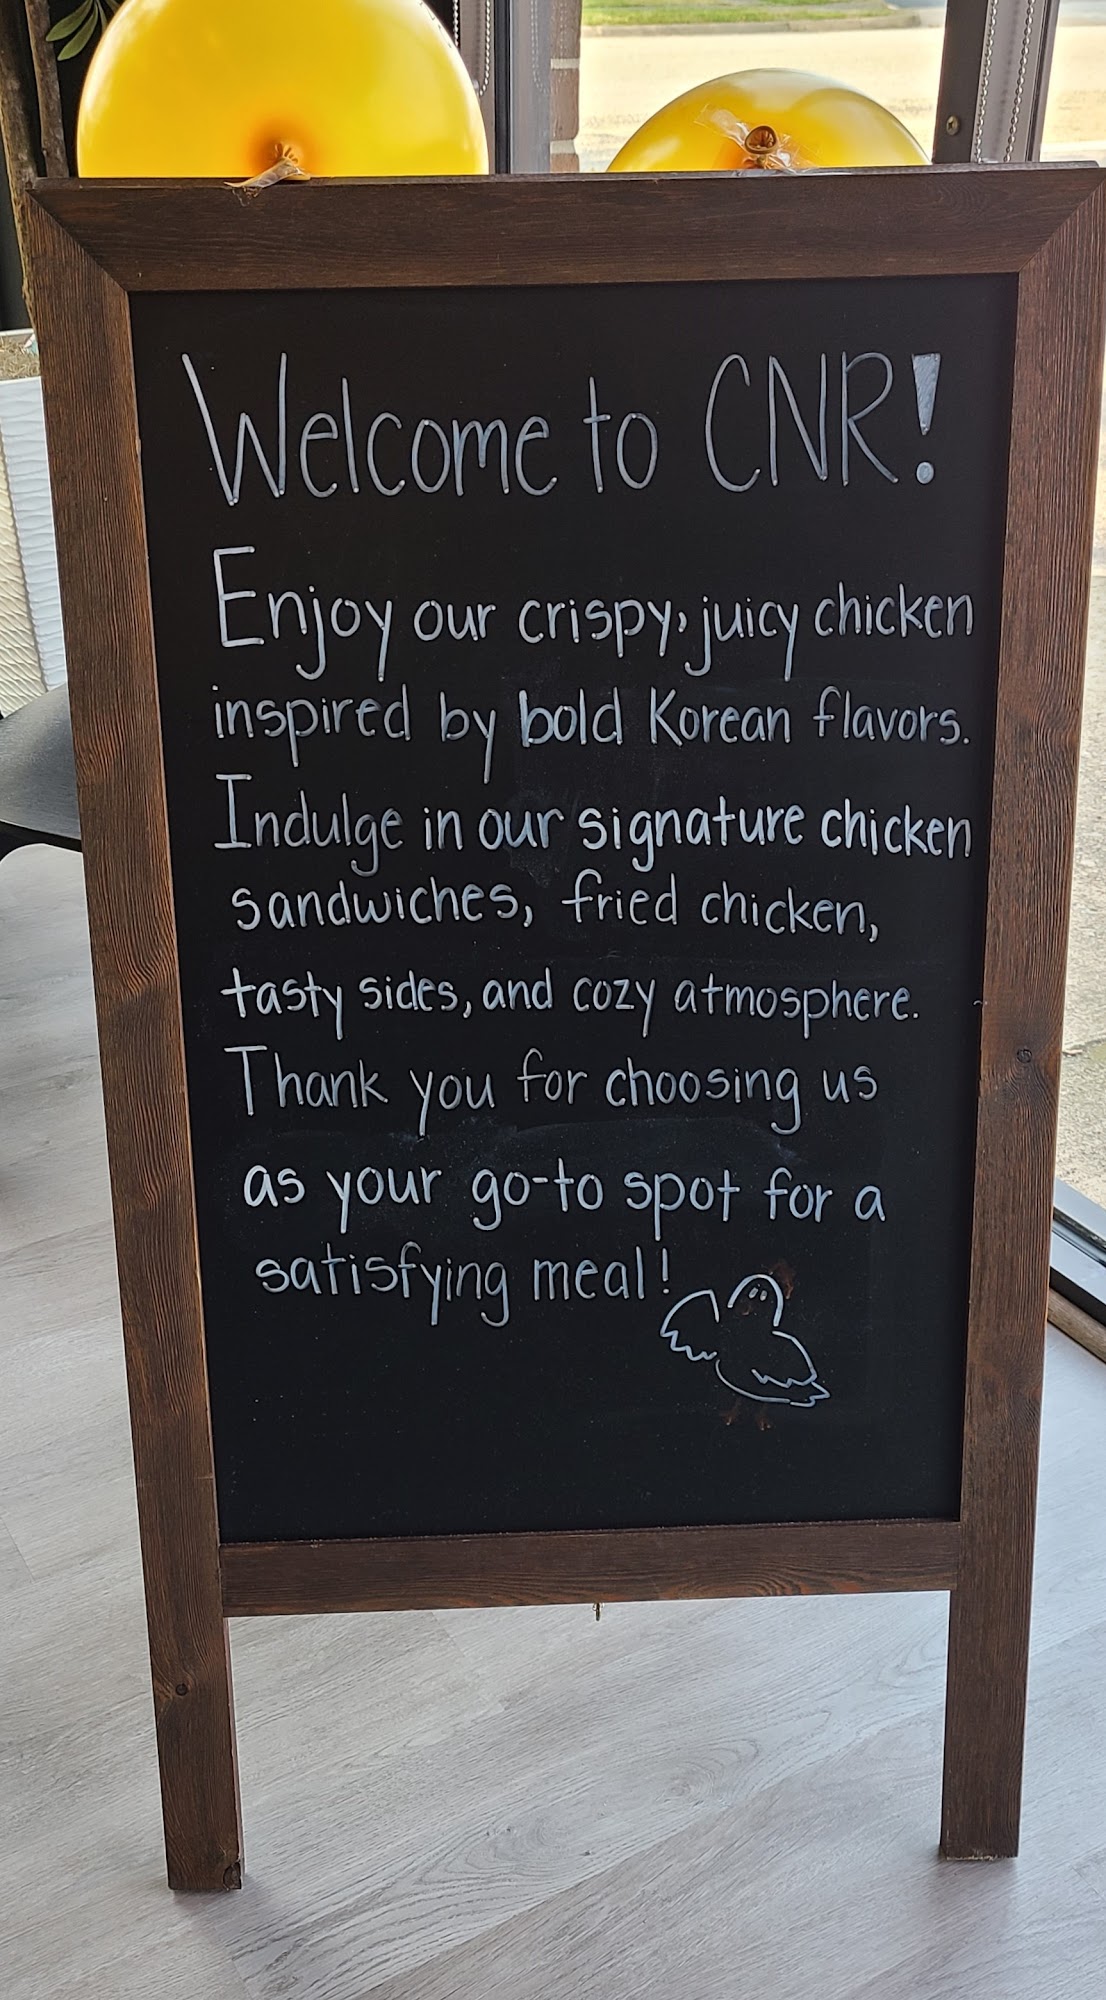 Welcome to CNR!
Enjoy our crispy, juicy chicken
inspired by bold Korean flavors.
Indulge in our signature chicken
sandwiches, fried chicken,
tasty sides, and cozy atmosphere.
Thank you for choosing us
as your go-to spot for a
satisfying meal!